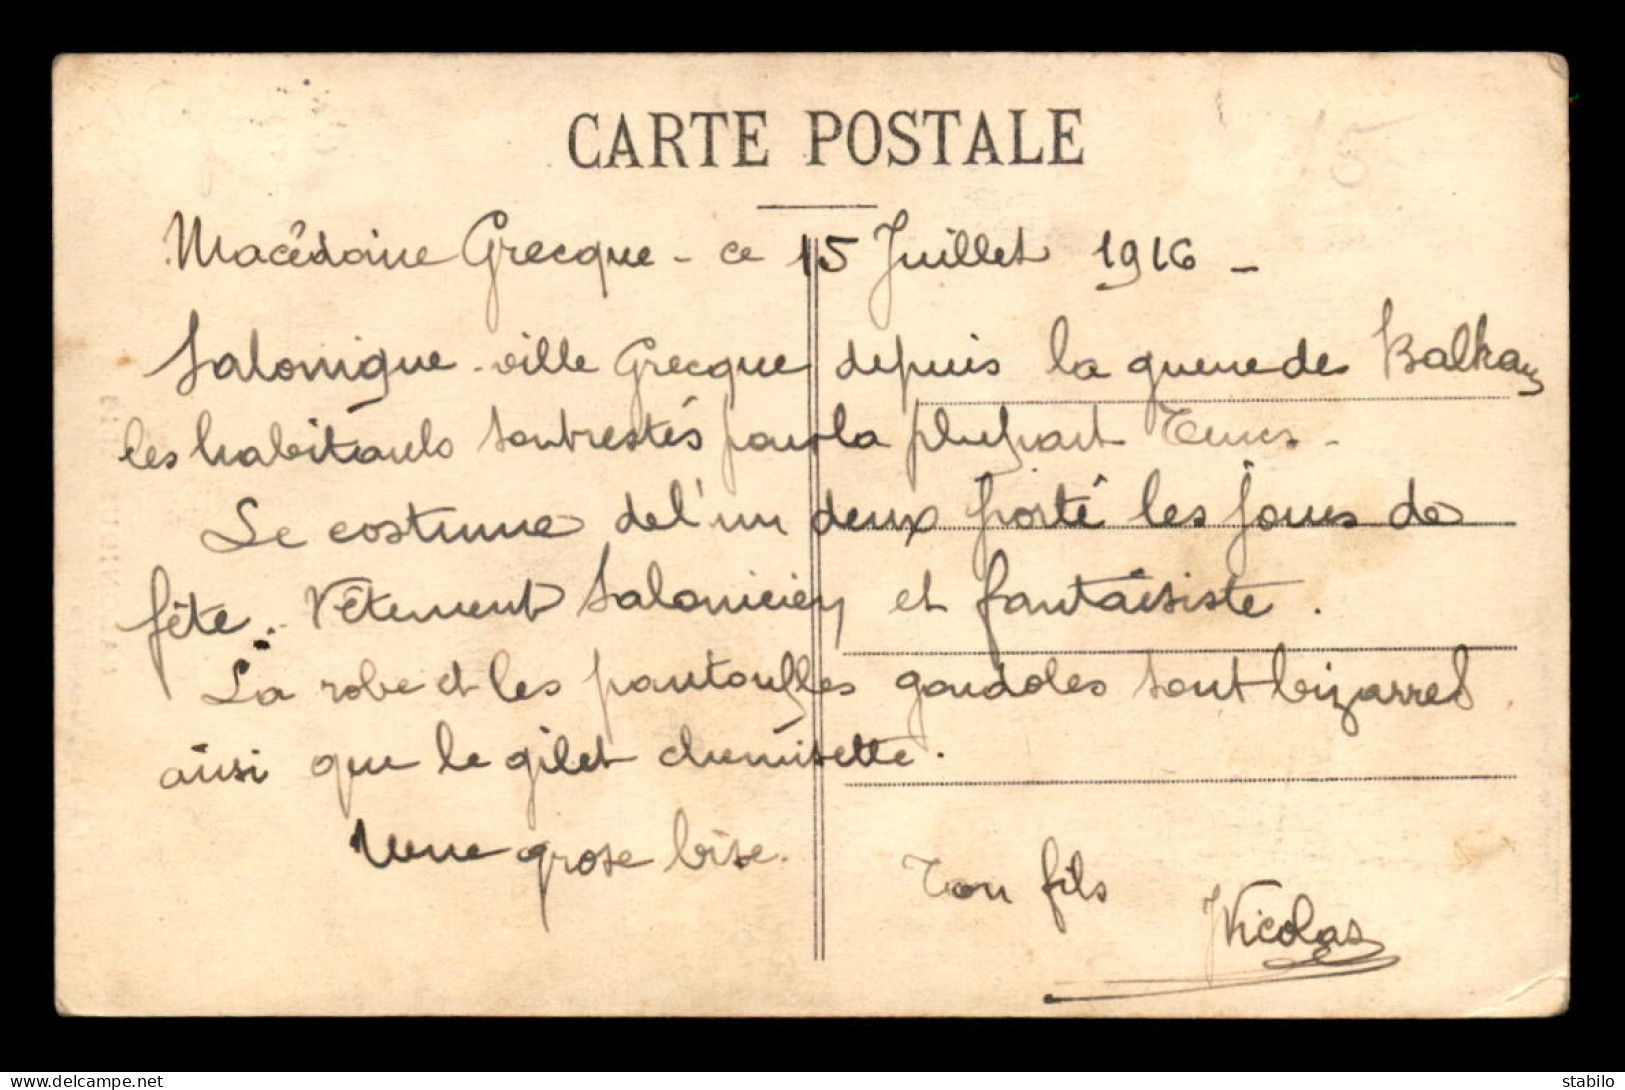 15
CARTE POSTALE
Macédoine Grecque - ce 15 Juillet 1916 -
Salonique - ville Grecque depuis la guerre des Balkans
les habitants sont restés pour la plupart Turcs -
Le costume de l'un deux porté les jours de
fête. Vêtement Salonicien et fantaisiste.
La robe et les pantoufles gondoles sont bizarres
ainsi que le gilet chemisette.
Une grose bise.
Ton fils
Nicolas
delcampe.net
stabilo